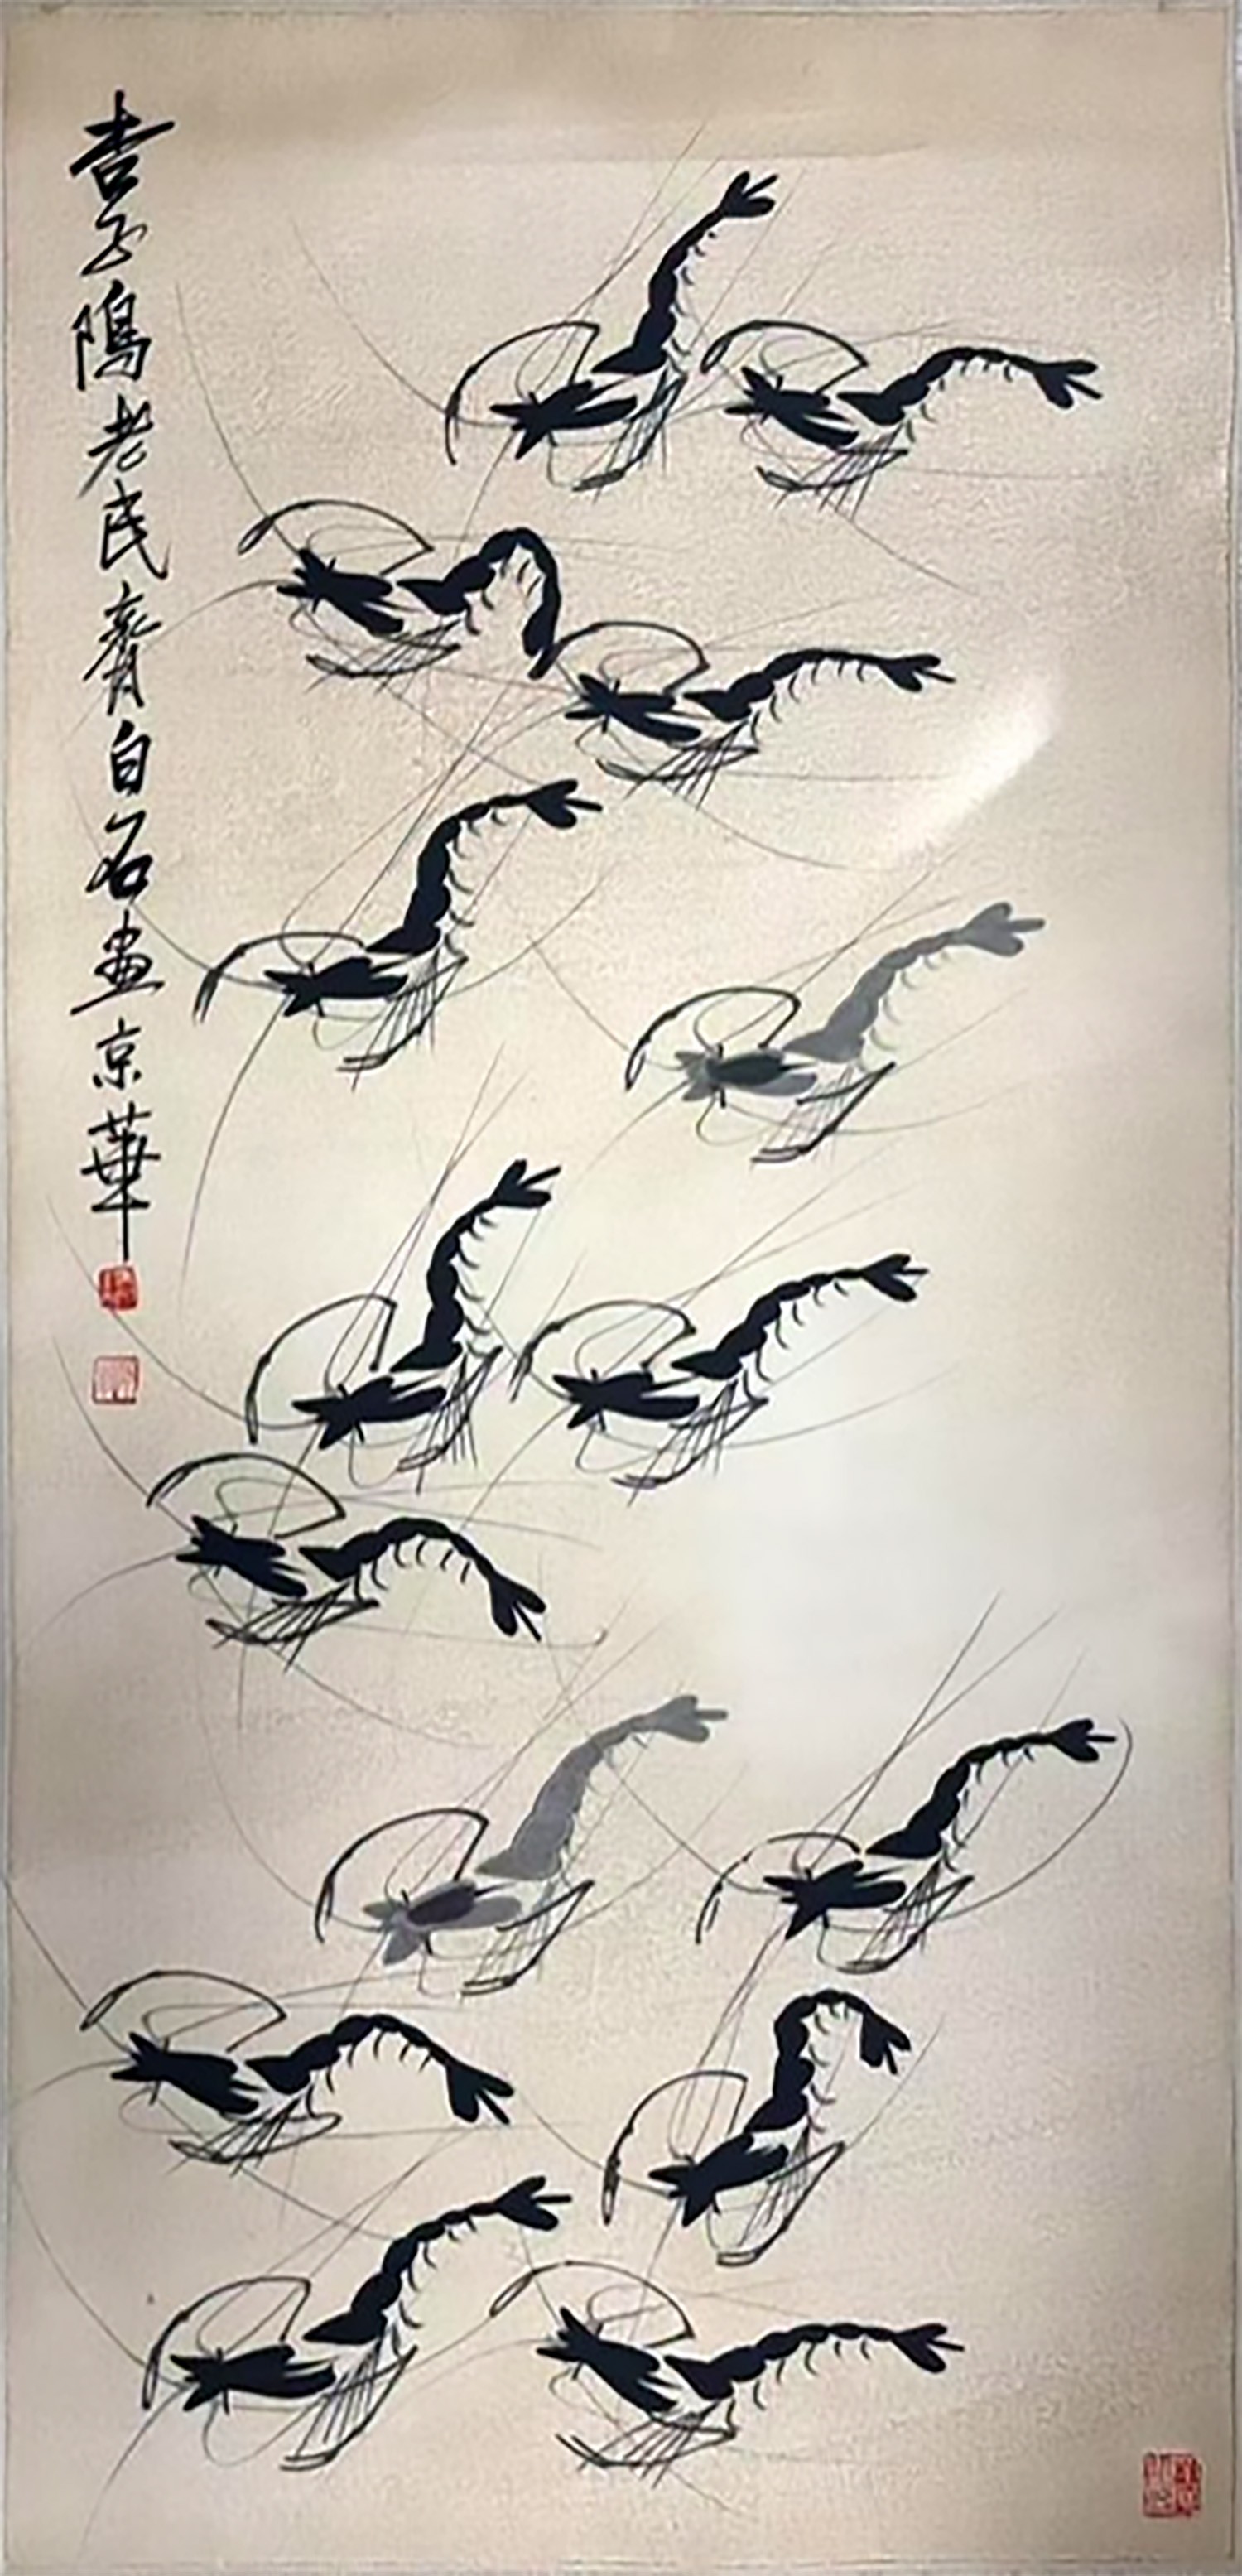 杏子隝老民齊白石畫京華